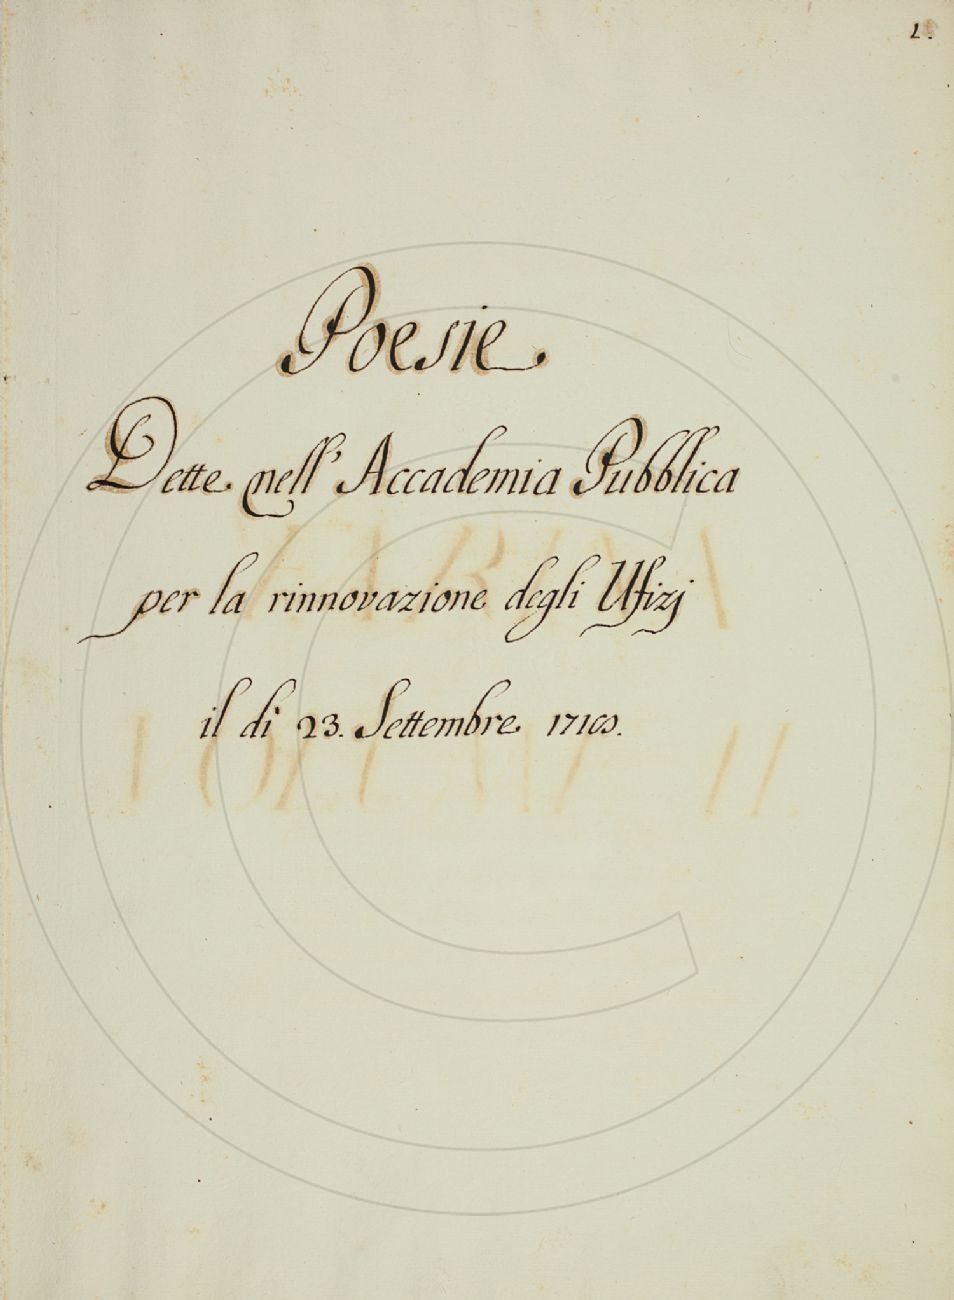 Poesie
Dette nell' Accademia Pubblica
per la rinnovazione degli Ufizj
il dì 23. Settembre